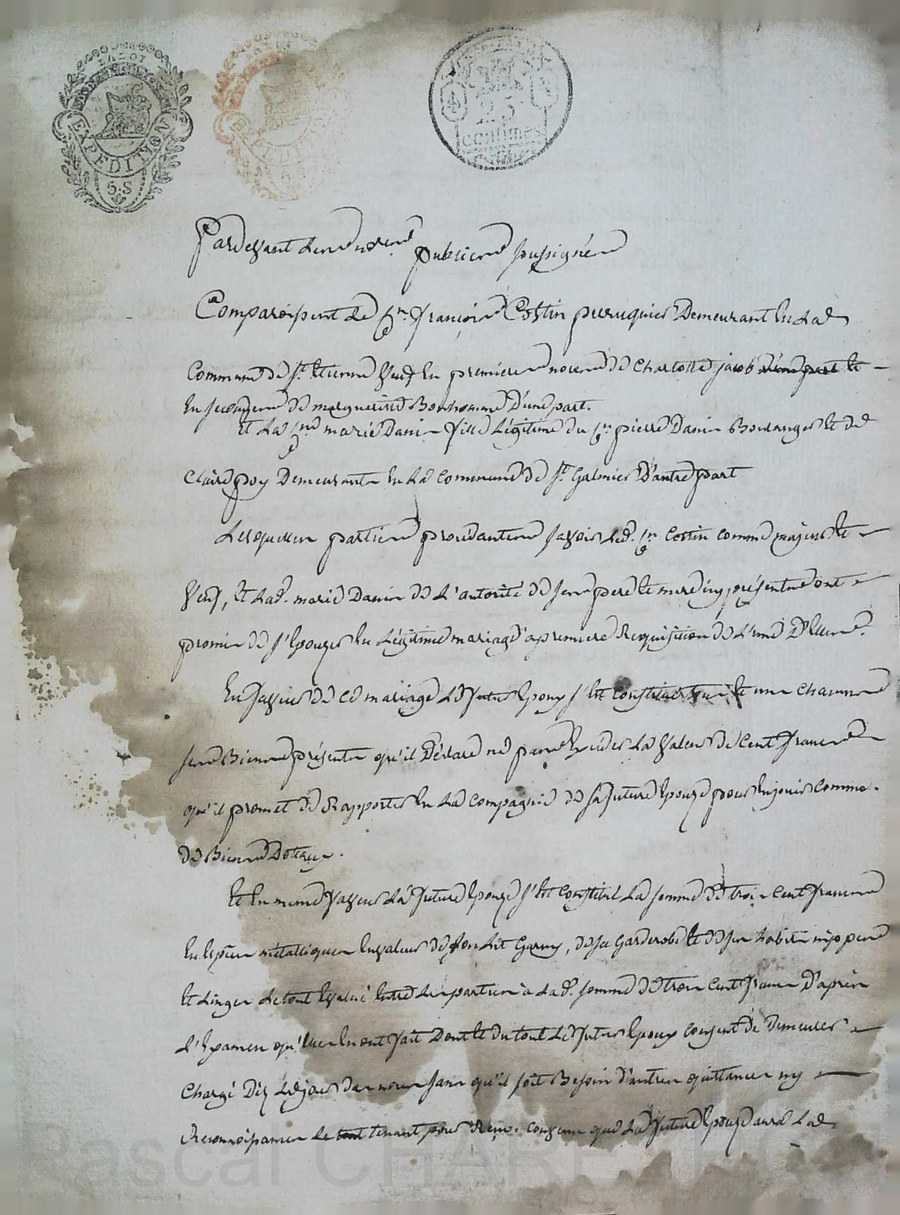 EXPEDITION
5.S
25
centimes
Pardevant Les notaires publics soussignés
Comparoissent Le Sr. françois Costin peruquier Demeurant En La
Commune de St. Etienne Veuf En premieres noces de Charlotte jacob et
En secondes de marguerite Bonhomme D'une part.
Et La marie Danis fille Légitime du Sr. pierre Danis Boulanger et de
Claire poy Demeurants En La Commune de St. Galmier D'autre part
Lesquelles parties procédantes savoir Led. Sr. Costin comme majeur et
Veuf, et Lad. marie Danis de L'autorité de ses pere et mere icy présents ont
promis de s'Epouser En Légitime mariage a premiere Requisition de L'un D'Eux.
En faveur de ce mariage Le futur Epoux s'est Constitué tous et un chacun
ses Biens présents qu'il Déclare ne pas Exceder La Valeur de Cent francs
qu'il promet de Rapporter En La Compagnie de sa future Epouse pour En jouir Comme
de Biens Dotaux.
Et En meme faveur La future Epouse s'est Constitué La somme de trois Cent francs
En Especes métalliques En valeur de son Lit Garny, de sa Garderobe et de ses habits nipes
et Linges Le tout Evalué Entre Les parties à Lad. somme de trois Cent francs D'après
L'Examen qu'elles En ont fait Dont et du tout Le futur Epoux Consent de Demeurer
Chargé Dès Le jour des noces sans qu'il soit Besoin d'autres quittances ny
Reconnoissances Le tenant pour Reçu. Convenu que La future Epouse aura Lad.
Pascal CHAR